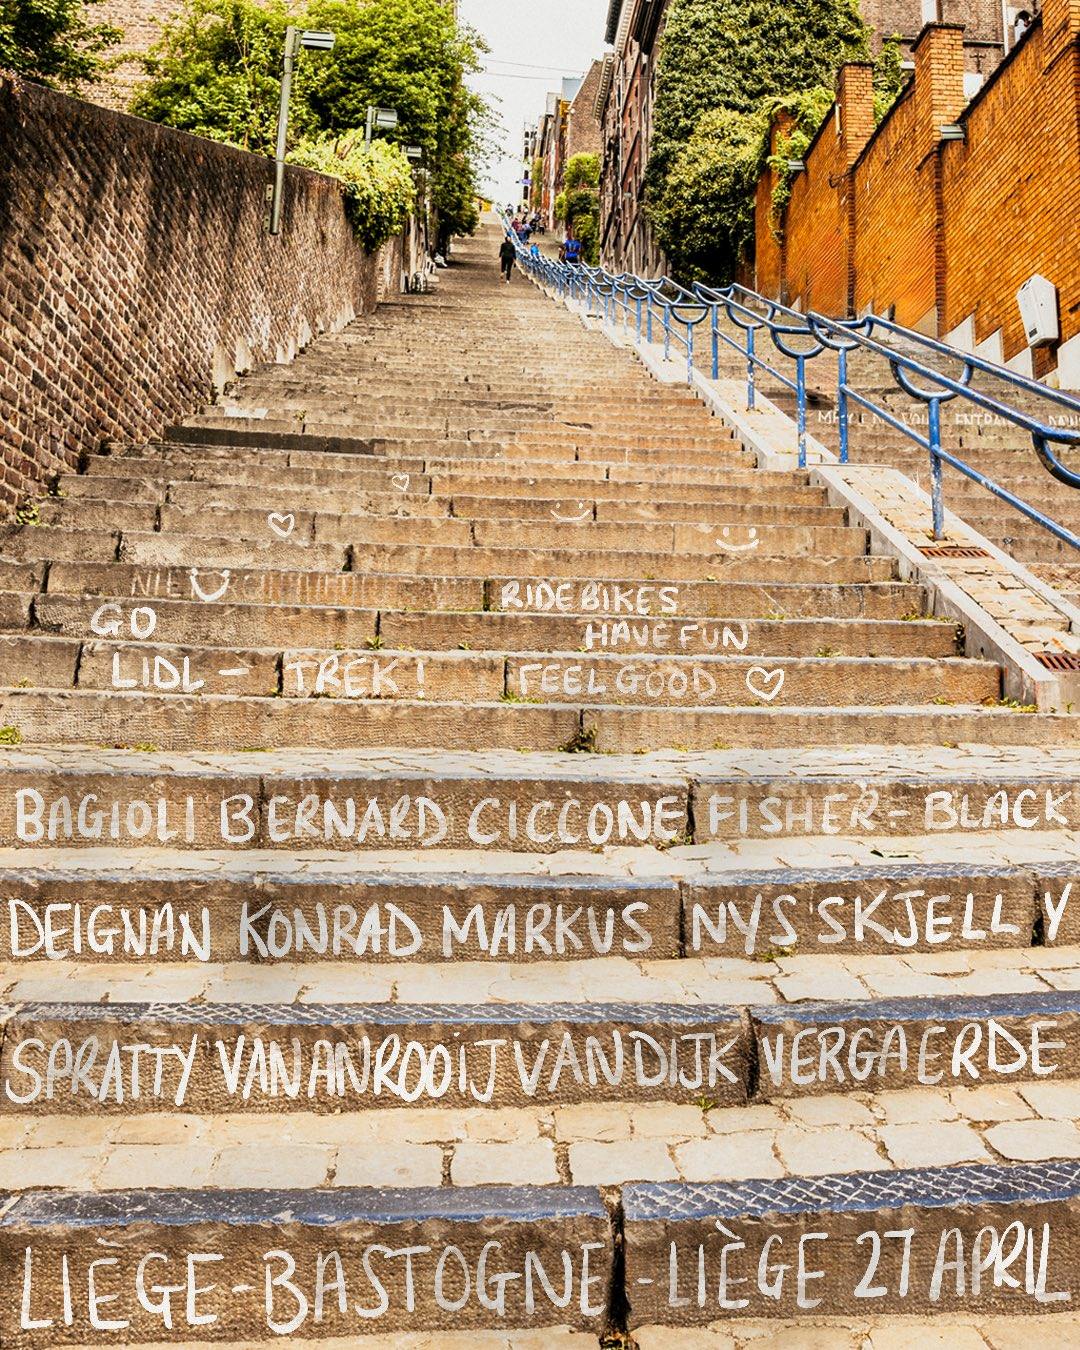 RIDE BIKES
GO
HAVE FUN
LIDL - TREK!
FEEL GOOD
BAGIOLI BERNARD CICCONE FISHER-BLACK
DEIGNAN KONRAD MARKUS NYS SKJELL Y
SPRATTY VAN ANROOIJ VAN DIJK VERGAERDE
LIÈGE-BASTOGNE-LIÈGE 27 APRIL